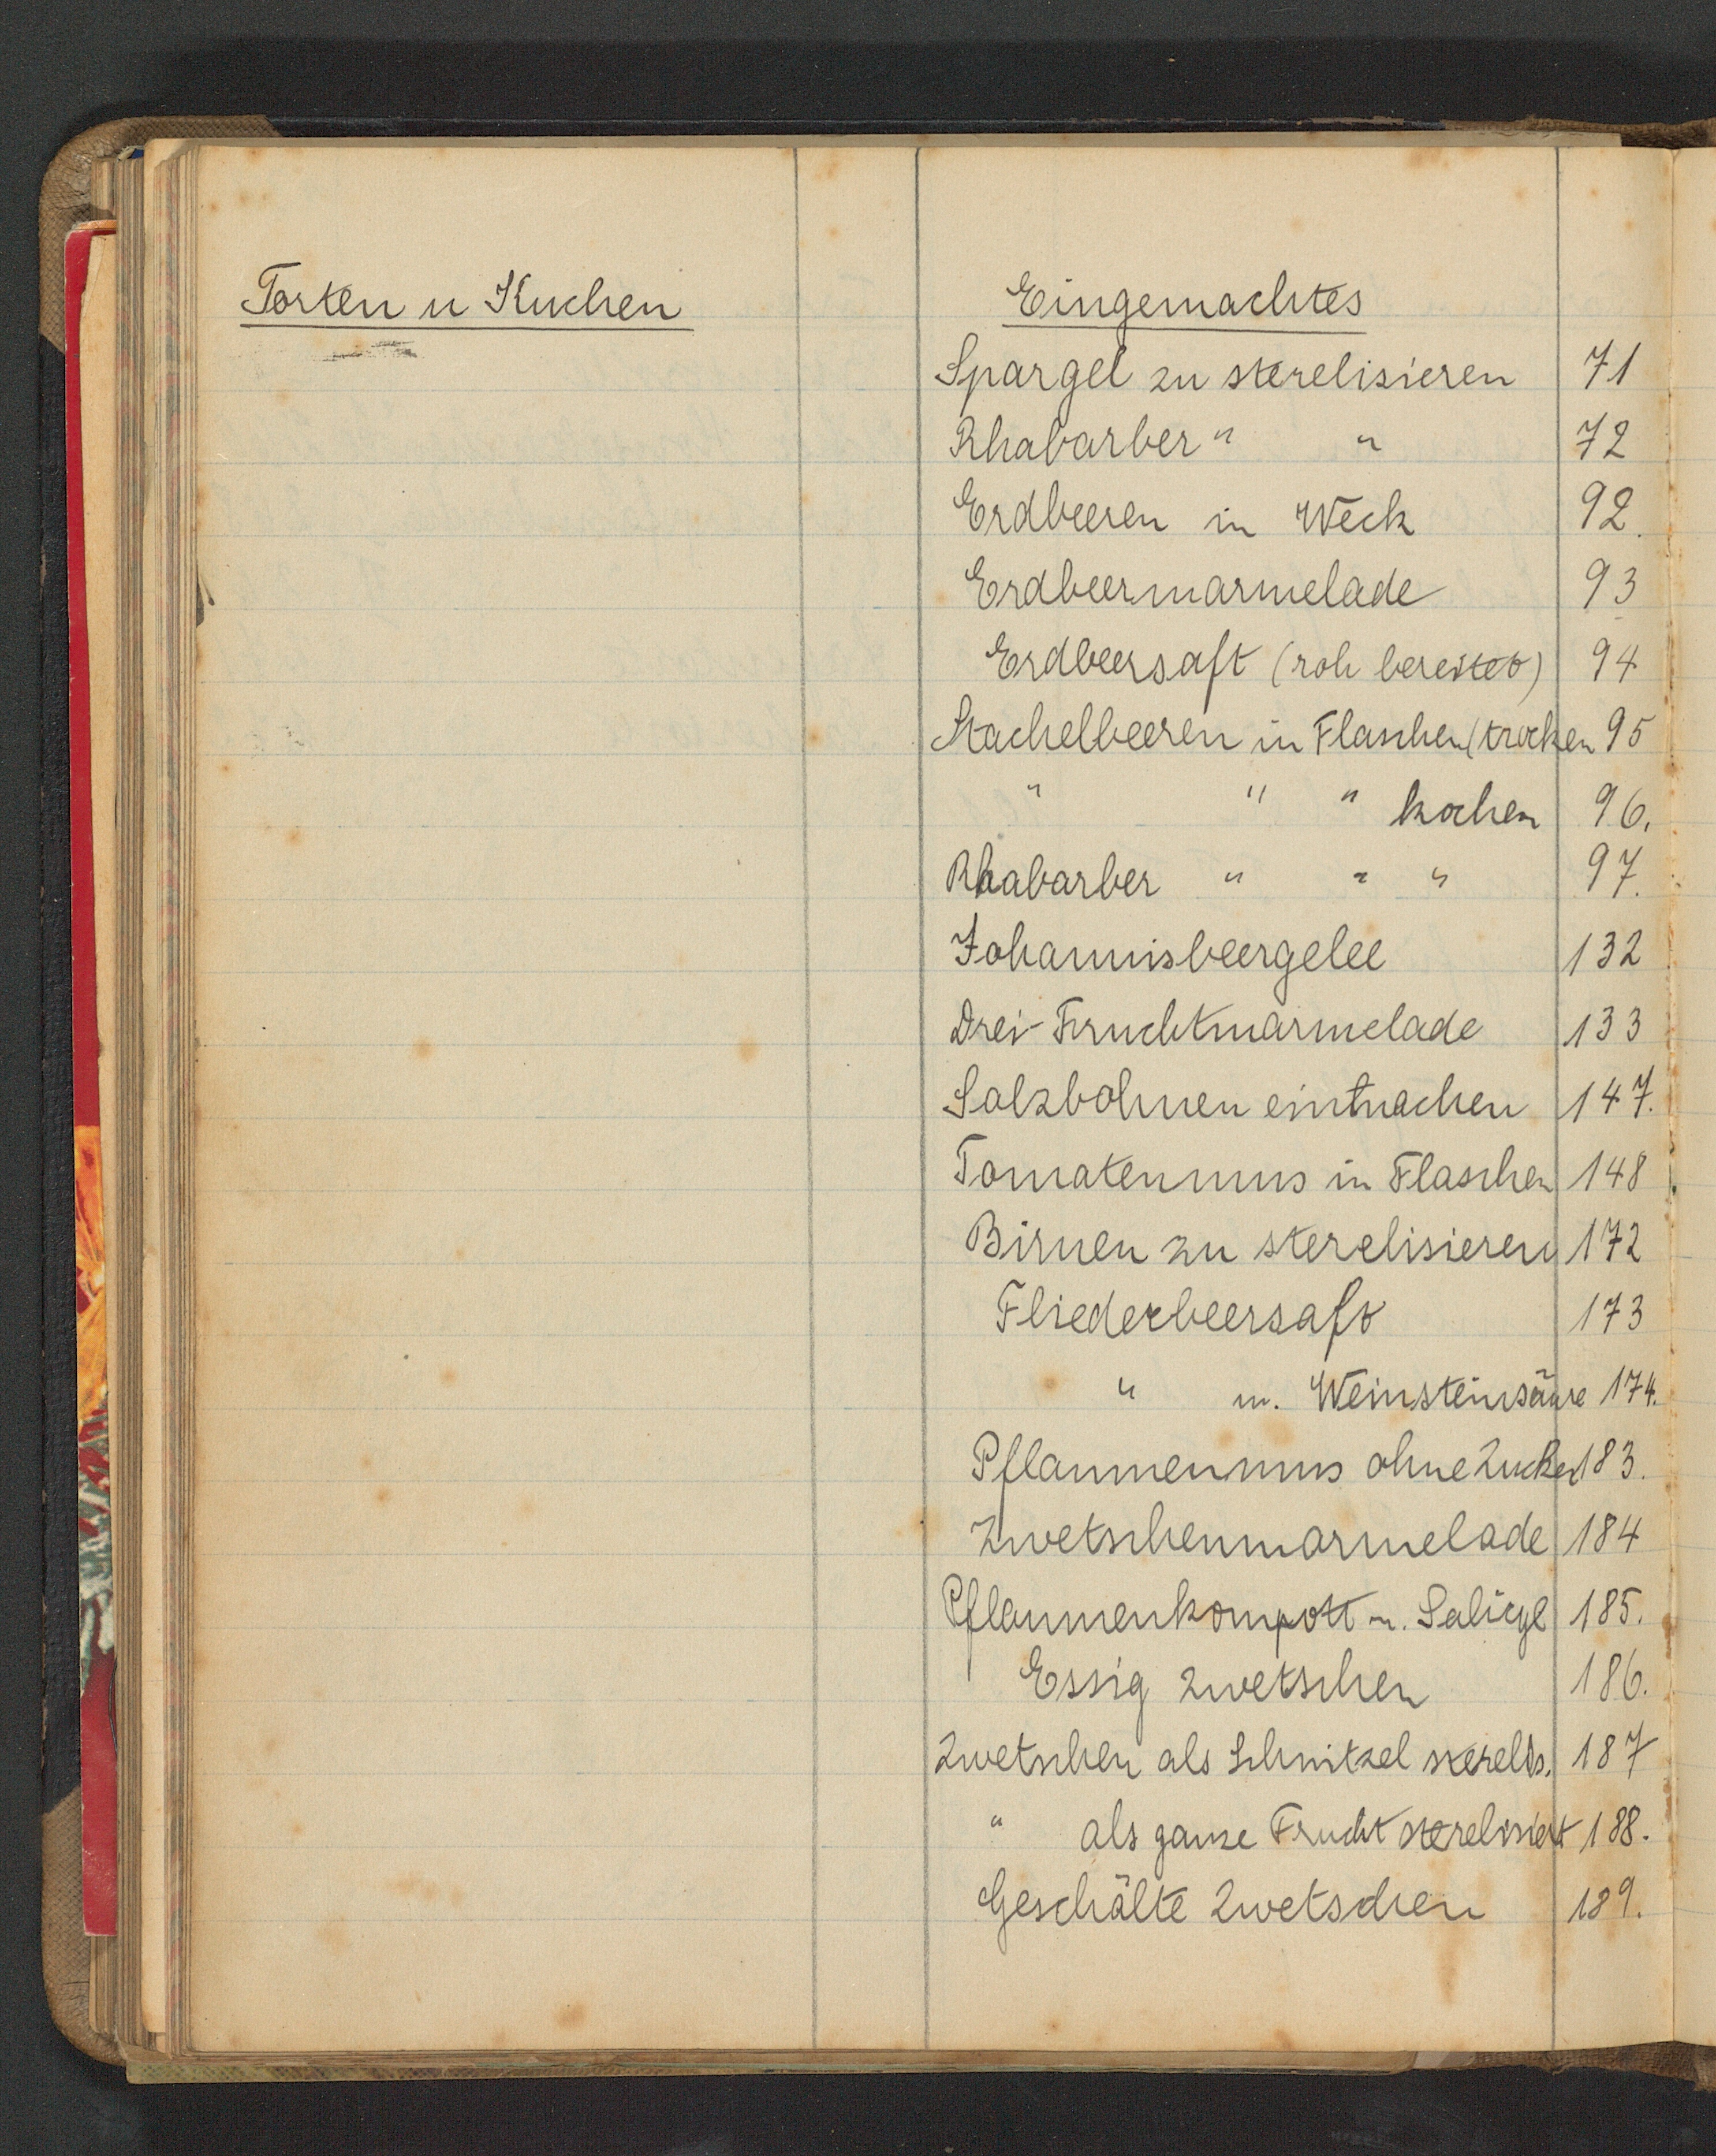 Torten u Kuchen
Eingemachtes
Spargel zu sterelisieren 71
Rhabarber " " 72
Erdbeeren in Weck 92.
Erdbeermarmelade 93
Erdbeersaft (roh bereitet) 94
Stachelbeeren in Flaschen (trocken 95
" " " kochen 96.
Rhabarber " " " 97.
Johannisbeergelee 132
Drei-Fruchtmarmelade 133
Salzbohnen einmachen 147.
Tomatenmus in Flaschen 148
Birnen zu sterelisieren 172
Fliederbeersaft 173
" m. Weinsteinsäure 174.
Pflaumenmus ohne Zucker 183.
Zwetschenmarmelade 184
Pflaumenkompott m. Salicyl 185.
Essig Zwetschen 186.
Zwetschen als Schnitzel sterelis. 187
" als ganze Frucht sterelisiert 188.
Geschälte Zwetschen 189.